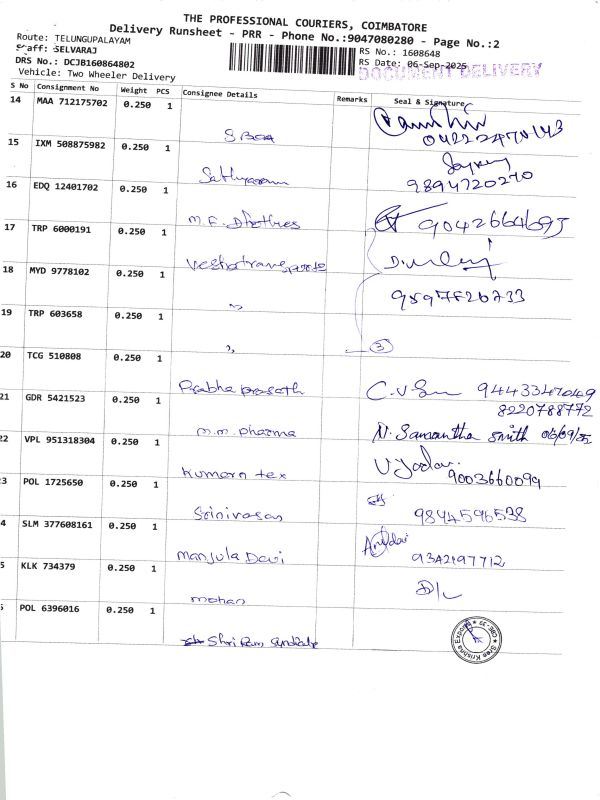 THE PROFESSIONAL COURIERS, COIMBATORE
Delivery Runsheet - PRR - Phone No.:9047080280 - Page No.:2
Route: TELUNGUPALAYAM
Staff: SELVARAJ
DRS No.: DCJB160864802
Vehicle: Two Wheeler Delivery
RS No.: 1608648
RS Date: 06-Sep-2025
DOCUMENT DELIVERY
S No Consignment No Weight PCS Consignee Details Remarks Seal & Signature
14 MAA 712175702 0.250 1
04222470143
15 IXM 508875982 0.250 1 Sathyaram
9894720270
16 EDQ 12401702 0.250 1 M.F. Dhothres 9042664695
17 TRP 6000191 0.250 1
18 MYD 9778102 0.250 1 "
9597526733
19 TRP 603658 0.250 1 " 3
20 TCG 510808 0.250 1 Prabha prasath 9443347049
8220788772
21 GDR 5421523 0.250 1 M.M. Pharma N. Samantha Smith 06/09/25
22 VPL 951318304 0.250 1 Kumaran tex 9003660099
3 POL 1725650 0.250 1 Srinivasan 9844596538
4 SLM 377608161 0.250 1 Manjula Devi 9342197712
5 KLK 734379 0.250 1 mohan
5 POL 6396016 0.250 1 Shri Ram Syndicate
Sree Krishna Exports